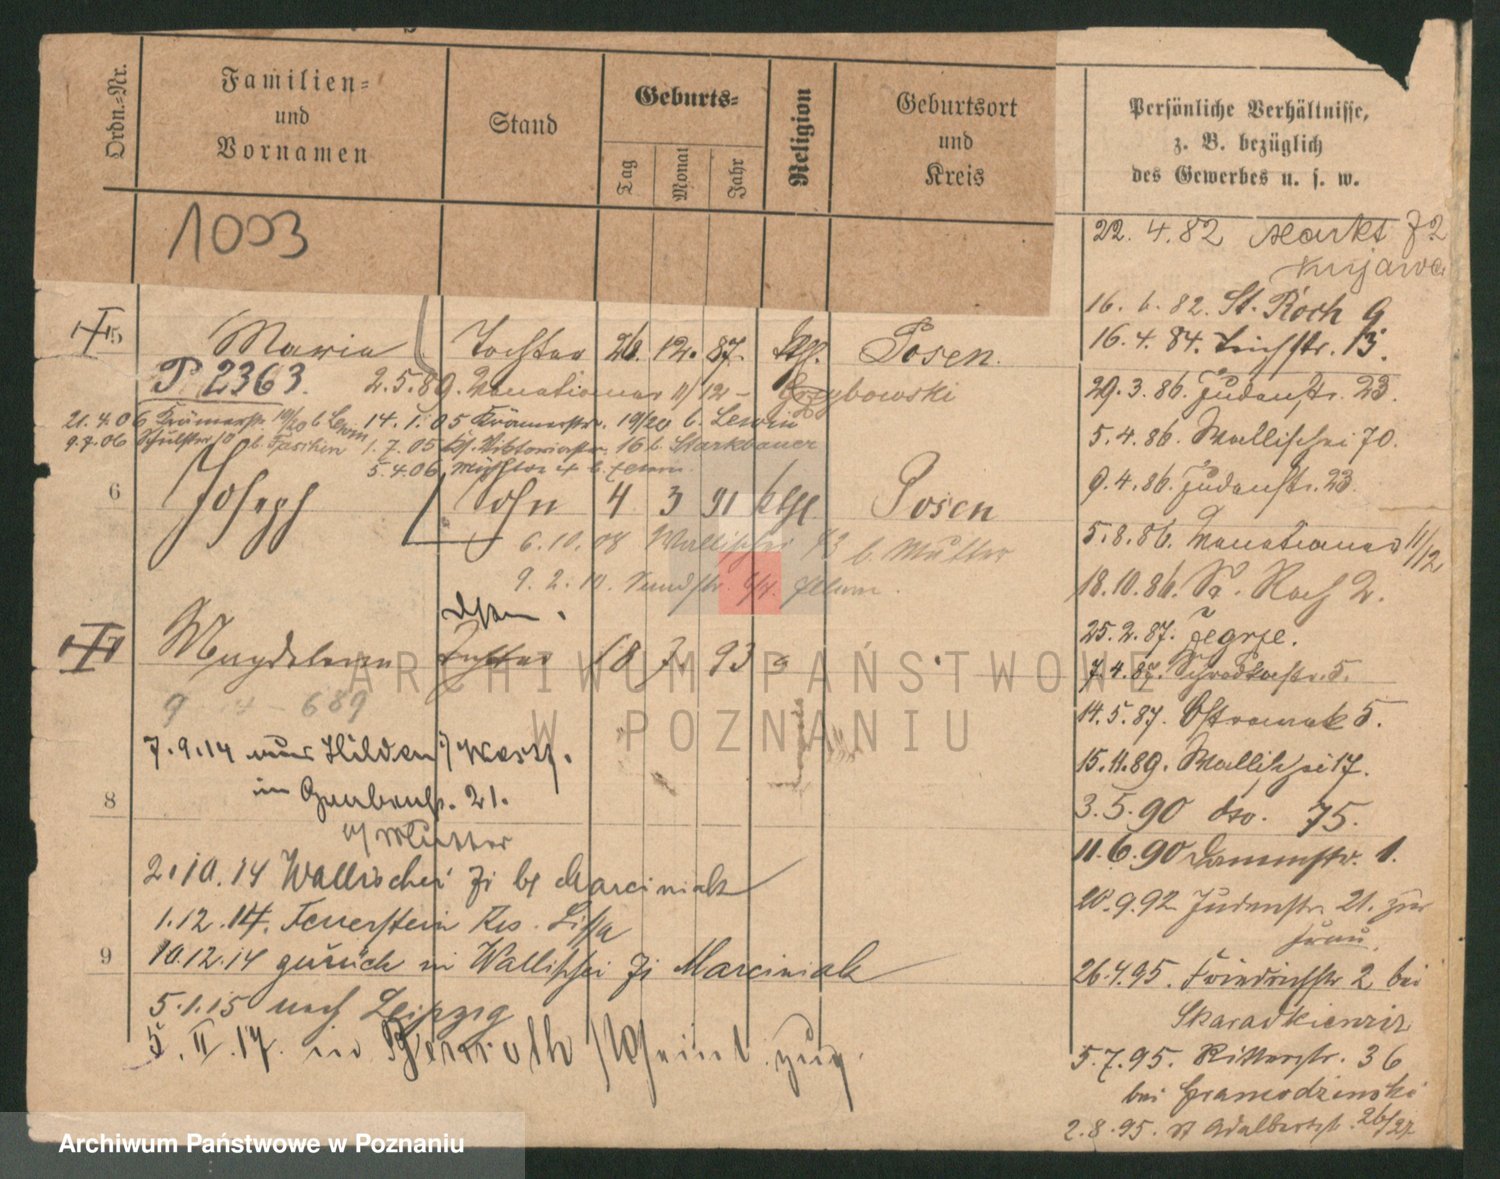 Ordn.-Nr.
Familien-
und
Vornamen
Stand
Geburts-
Tag
Monat
Jahr
Religion
Geburtsort
und
Kreis
Persönliche Verhältnisse,
z. B. bezüglich
des Gewerbes u. s. w.
1003
Maria Tochter 26. 12. 87. Posen.
P. 2363. 2.5.89. Venetianer 11/12 - Grzybowski
21.4.06 Krämerstr. 19/20 b Lewin 14.1.05 Krämerstr. 19/20 b. Lewin
9.7.06 1.7.05 Viktoriastr. 16 b. Starkbauer
5.4.06
6 Joseph Sohn 4 3 91 Posen
6.10.08 Wallischei 73 b. Mutter
9.2.10.
Magdalena Tochter 18 7. 93
9 689
7.9.14 nach Hilden i/Westf.
in 21.
b/ Mutter
8
2.10.14 Wallischei 71 bei Marciniak
1.12.14. Feuerstein Krs. Lissa
9 10.12.14 zurück in Wallischei 71 Marciniak
5.1.15 nach Leipzig
5.II.17. in Benrath Rheinl. zug.
22.4.82 Markt 72
Kujawa
16.6.82. St. Roch 9
16.4.84. Teichstr. 13.
29.3.86. Judenstr. 23.
5.4.86. Wallischei 70.
9.4.86. Judenstr. 23.
5.8.86. Venetianer 11/12
18.10.86. St. Roch 2.
25.2.87. Zegrze.
7.4.87. Schrodkastr. 5.
14.5.87. Ostrowek 5.
15.11.89. Wallischei 17.
3.5.90 dto. 75.
11.6.90 Dammstr. 1.
20.9.92 Judenstr. 21. zur
Frau.
26.4.95. Friedrichstr 2 bei
Skaradkiewicz
5.7.95. Ritterstr. 36
bei Gramodzinski
2.8.95. St Adalbertstr. 26/27
ARCHIWUM PAŃSTWOWE
W POZNANIU
Archiwum Państwowe w Poznaniu